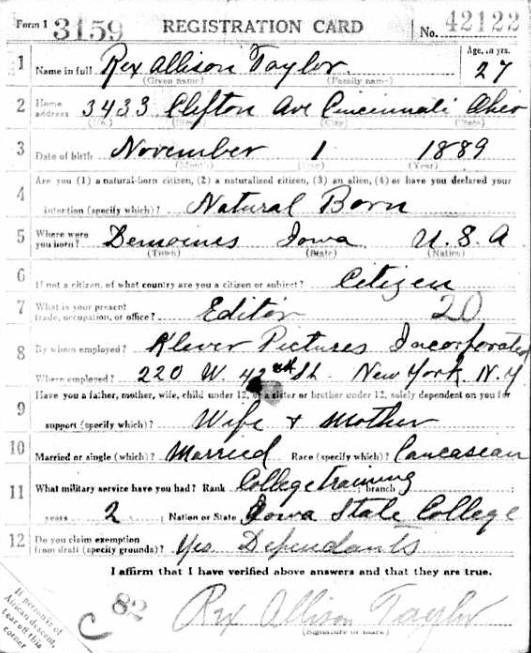 Form 1 3159 REGISTRATION CARD No. 42122
1 Name in full Rex Allison Taylor Age, in yrs. 27
(Given name) (Family name)
2 Home address 3433 Clifton Ave Cincinnati Ohio
(No.) (Street) (City) (State)
3 Date of birth November 1 1889
(Month) (Day) (Year)
4 Are you (1) a natural-born citizen, (2) a naturalized citizen, (3) an alien, (4) or have you declared your
intention (specify which)? Natural Born
5 Where were you born? Demoines Iowa U.S.A
(Town) (State) (Nation)
6 If not a citizen, of what country are you a citizen or subject? Citizen
7 What is your present trade, occupation, or office? Editor 20
8 By whom employed? Klever Pictures Incorporated
Where employed? 220 W. 42nd St. New York. N.Y
9 Have you a father, mother, wife, child under 12, or a sister or brother under 12, solely dependent on you for
support (specify which)? Wife + Mother
10 Married or single (which)? Married Race (specify which)? Caucasean
11 What military service have you had? Rank College training ; branch
years 2 ; Nation or State Iowa State College
12 Do you claim exemption from draft (specify grounds)? Yes Dependants
I affirm that I have verified above answers and that they are true.
C 82 Rex Allison Taylor
(Signature or mark)
If person is of
African descent,
tear off this
corner